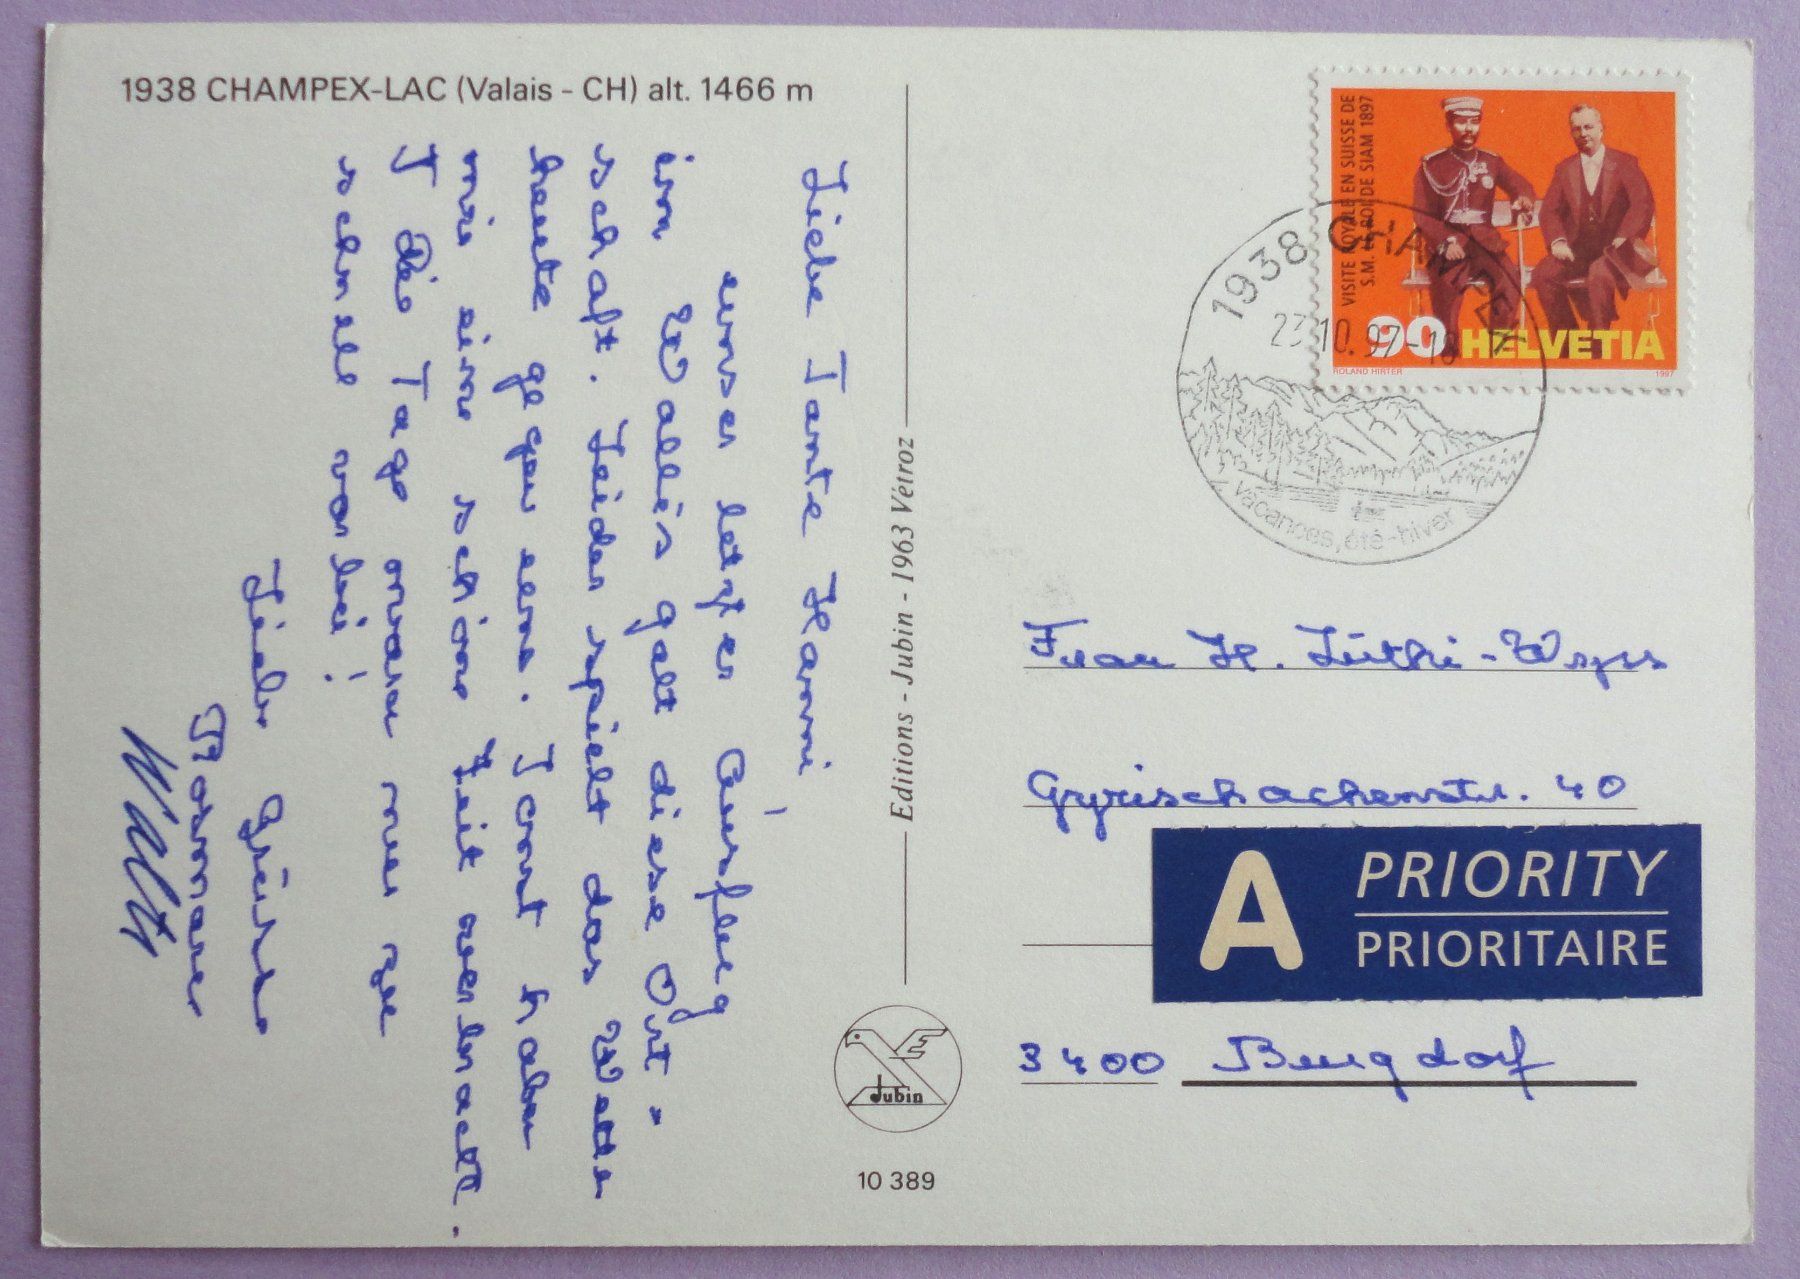 1938 CHAMPEX-LAC (Valais - CH) alt. 1466 m
Liebe Tante Hanni
unser letzter Ausflug
im Wallis galt diese Ort-
schaft. Leider spielt das Wetter
heute gegen uns. Sonst haben
wir eine schöne Zeit verbracht.
Die Tage waren nur zu
schnell vorbei!
Liebe Grüsse
Rosmarie
Walti
Editions - Jubin - 1963 Vétroz
Jubin
10 389
VISITE ROYALE EN SUISSE DE
S.M. LE ROI DE SIAM 1897
90 HELVETIA
ROLAND HIRTER 1997
1938 CHAMPEX
23.10.97-18
vacances, été-hiver
Frau H. Lüthi-Wyss
Gyrischachenstr. 40
A PRIORITY
PRIORITAIRE
3400 Burgdorf